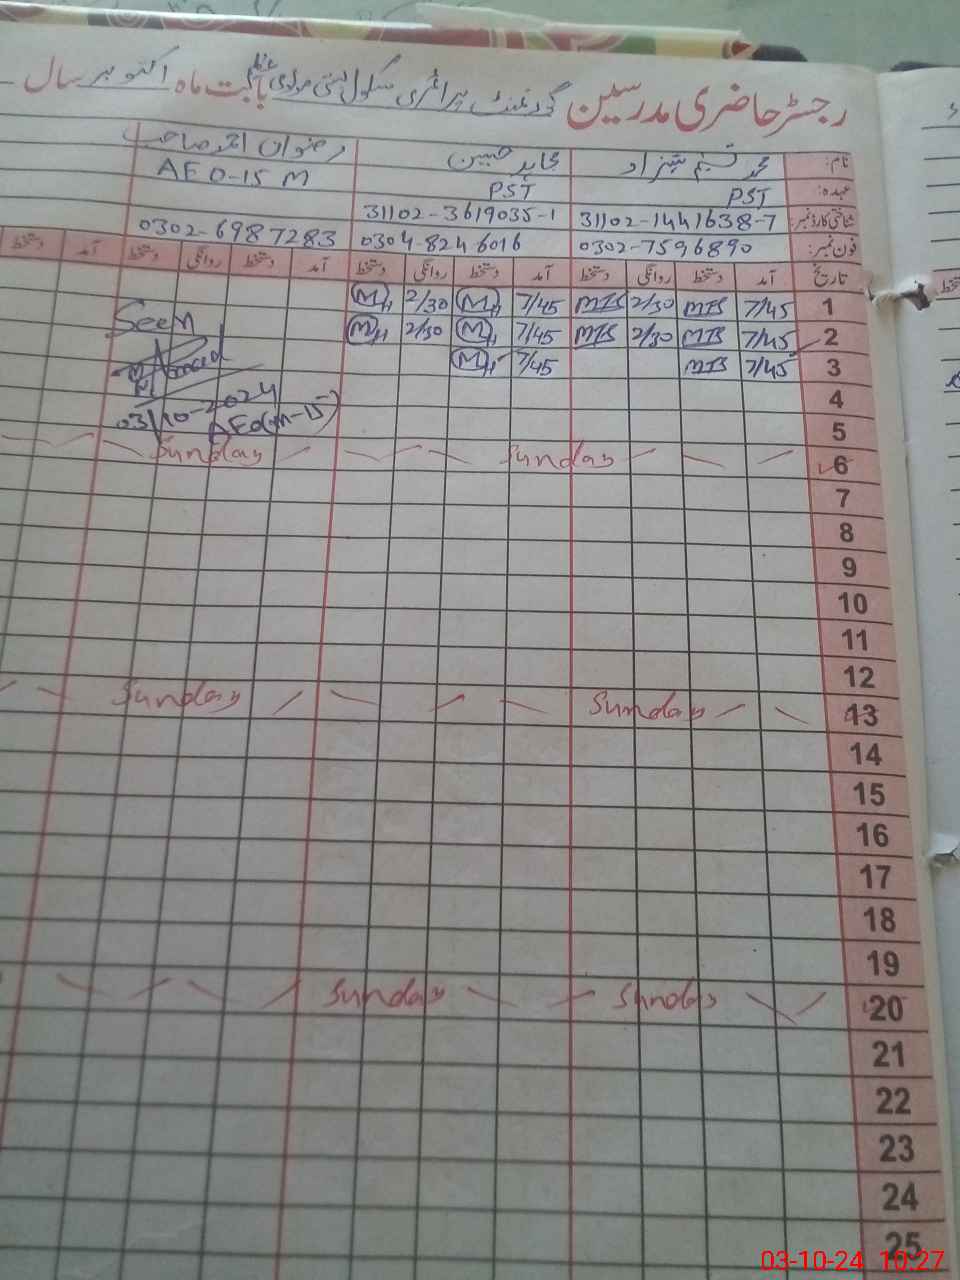 رجسٹر حاضری مدرسین گورنمنٹ پرائمری سکول بستی مولوی بابت ماہ اکتوبر سال
نام: محمد تسنیم شہزاد مجاہد حسین رضوان احمد صاحب
عہدہ: PST PST AEO-15 M
شناختی کارڈ نمبر: 31102-1441638-7 31102-3619035-1
فون نمبر: 0302-7596890 0304-8246016 0302-6987283
تاریخ آمد دستخط روانگی دستخط آمد دستخط روانگی دستخط آمد دستخط روانگی دستخط آمد دستخط
1 7/45 MTS 2/30 MTS 7/45 MH 2/30 MH
2 7/45 MTS 2/30 MTS 7/45 MH 2/30 MH
3 7/45 MTS 7/45 MH
Seen
Ahmed
03/10-2024
AEO(M-15)
4
5
6 Sunday Sunday
7
8
9
10
11
12
13 Sunday Sunday
14
15
16
17
18
19
20 Sunday Sunday
21
22
23
24
25
03-10-24 10:27